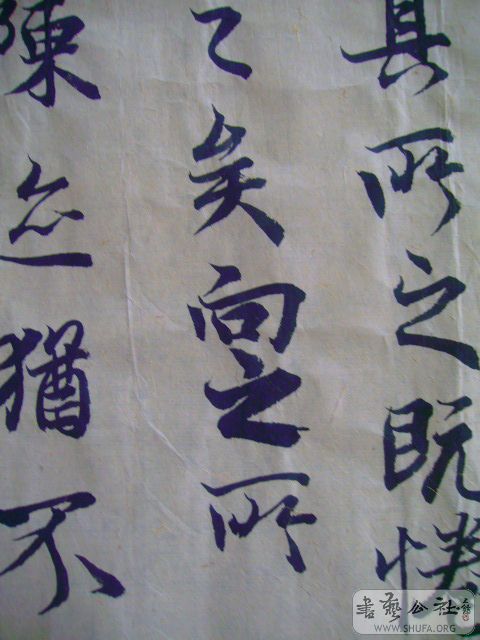 其所之既惓
之矣向之所
陳迹猶不
書藝公社
WWW.SHUFA.ORG